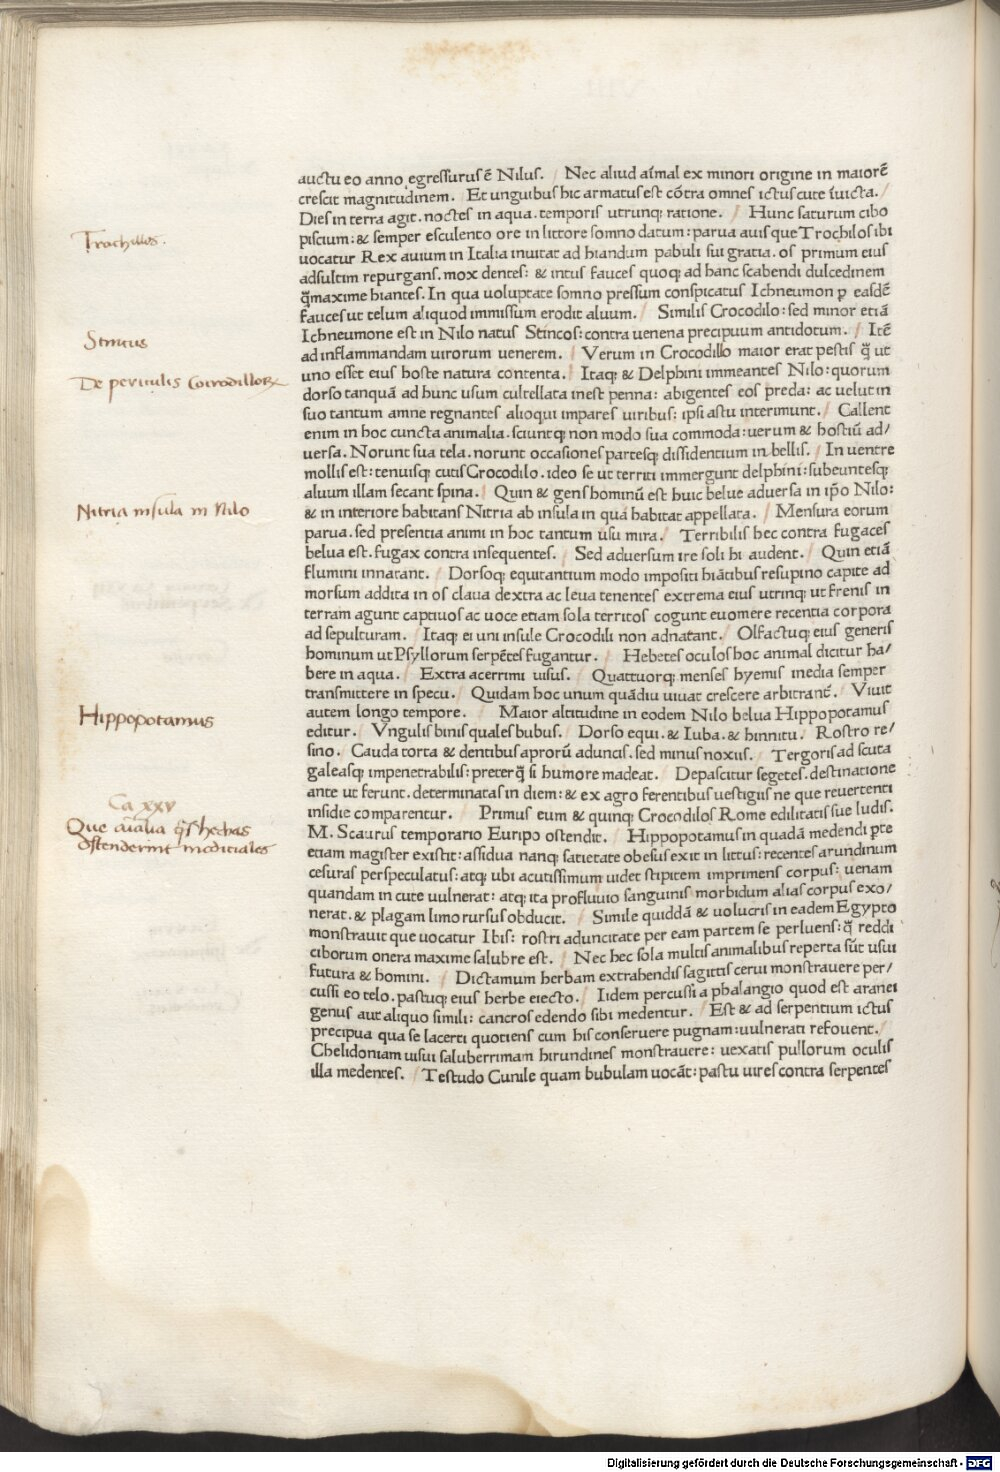 auctu eo anno egressurus ē Nilus. / Nec aliud aīmal ex minori origine in maiorē
crescit magnitudinem. / Et unguibus hic armatus est cōtra omnes ictus cute īuicta. /
Dies in terra agit. noctes in aqua. temporis utrunq; ratione. / Hunc saturum cibo
Trochilos.
piscium: & semper esculento ore in littore somno datum: parua auis que Trochilos ibi
uocatur Rex auium in Italia inuitat ad hiandum pabuli sui gratia. os primum eius
adsultim repurgans. mox dentes: & intus fauces quoq; ad hanc scabendi dulcedinem
q̄maxime hiantes. In qua uoluptate somno pressum conspicatus Ichneumon p easdē
fauces ut telum aliquod immissum erodit aluum. / Similis Crocodilo: sed minor etiā
Stincus
Ichneumone est in Nilo natus Stincos: contra uenena precipuum antidotum. / Itē
ad inflammandam uirorum uenerem. / Verum in Crocodillo maior erat pestis q̄ ut
De periculis Cocrodillorꝝ
uno esset eius hoste natura contenta. / Itaq; & Delphini immeantes Nilo: quorum
dorso tanquā ad hunc usum cultellata inest penna: abigentes eos preda: ac uelut in
suo tantum amne regnantes alioqui impares uiribus: ipsi astu interimunt. / Callent
enim in hoc cuncta animalia. sciuntq; non modo sua commoda: uerum & hostiū ad/
uersa. Norunt sua tela. norunt occasiones partesq; dissidentium in bellis. / In uentre
mollis est: tenuisq; cutis Crocodilo. ideo se ut territi immergunt delphini: subeuntesq;
aluum illam secant spina. / Quin & gens hominū est huic belue aduersa in ip̄o Nilo:
Nitria insula in Nilo
& in interiore habitans Nitria ab insula in qua habitat appellata. / Mensura eorum
parua. sed presentia animi in hoc tantum usu mira. / Terribilis hec contra fugaces
belua est. fugax contra insequentes. / Sed aduersum ire soli hi audent. / Quin etiā
flumini innatant. / Dorsoq; equitantium modo impositi hiātibus resupino capite ad
morsum addita in os claua dextra ac leua tenentes extrema eius utrinq; ut frenis in
terram agunt captiuos ac uoce etiam sola territos cogunt euomere recentia corpora
ad sepulturam. / Itaq; ei uni insule Crocodili non adnatant. / Olfactuq; eius generis
hominum ut Psyllorum serpētes fugantur. / Hebetes oculos hoc animal dicitur ha/
bere in aqua. / Extra acerrimi uisus. / Quattuorq; menses hyemis inedia semper
transmittere in specu. / Quidam hoc unum quādiu uiuat crescere arbitranť. / Viuit
Hippopotamus
autem longo tempore. / Maior altitudine in eodem Nilo belua Hippopotamus
editur. / Vngulis binis quales bubus. / Dorso equi. & Iuba. & hinnitu. / Rostro re/
sino. / Cauda torta & dentibus aprorū aduncis. sed minus noxiis. / Tergoris ad scuta
galeasq; impenetrabilis: preterq̄ si humore madeat. / Depascitur segetes. destinatione
ante ut ferunt. determinatas in diem: & ex agro ferentibus uestigiis ne que reuertenti
Ca xxv
insidie comparentur. / Primus eum & quinq; Crocodilos Rome edilitatis sue ludis.
Que aīalia q̄s herbas
M. Scaurus temporario Euripo ostendit. / Hippopotamus in quadā medendi ꝑte
ostenderint medicinales
etiam magister existit: assidua nanq; satietate obesus exit in littus: recentes arundinum
cesuras perspeculatus: atq; ubi acutissimum uidet stipitem imprimens corpus: uenam
quandam in cute uulnerat: atq; ita profluuio sanguinis morbidum alias corpus exo/
nerat. & plagam limo rursus obducit. / Simile quiddā & uolucris in eadem Egypto
monstrauit que uocatur Ibis: rostri aduncitate per eam partem se perluens: q̄ reddi
ciborum onera maxime salubre est. / Nec hec sola multis animalibus reperta sūt usui
futura & homini. / Dictamum herbam extrahendis sagittis cerui monstrauere per/
cussi eo telo. pastuq; eius herbe eiecto. / Iidem percussi a phalangio quod est aranei
genus aut aliquo simili: cancros edendo sibi medentur. / Est & ad serpentium ictus
precipua qua se lacerti quotiens cum his conseruere pugnam: uulnerati refouent. /
Chelidoniam uisui saluberrimam hirundines monstrauere: uexatis pullorum oculis
illa medentes. / Testudo Cunile quam bubulam uocāt: pastu uires contra serpentes
Digitalisierung gefördert durch die Deutsche Forschungsgemeinschaft - DFG